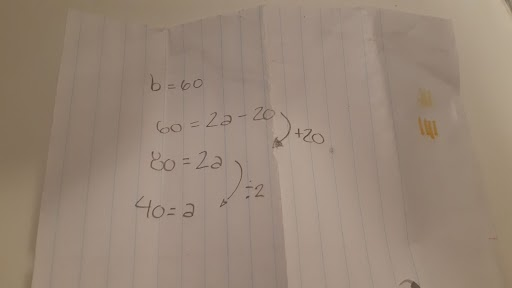 b = 60
60 = 2a - 20
+20
80 = 2a
÷2
40 = a